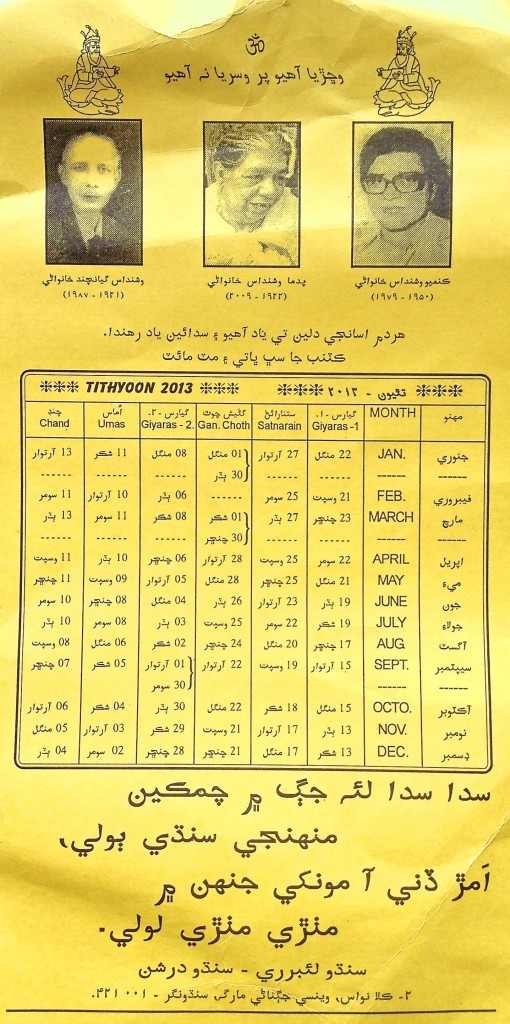 ॐ
وڇڙيا آهيو پر وسريا نہ آهيو
وشنداس گيانچند خانواڻي
(۱۹۲۱ - ۱۹۸۷)
پدما وشنداس خانواڻي
(۱۹۲۲ - ۲۰۰۹)
ڪنميو وشنداس خانواڻي
(۱۹۵۰ - ۱۹۷۹)
هردم اسانجي دلين تي ياد آهيو ۽ سدائين ياد رهندا.
ڪٽنب جا سڀ ڀاتي ۽ مٽ مائٽ
TITHYOON 2013 تٿيون - ۲۰۱۳
چنڊ اُماس گيارس -۲ گڻيش چوٿ ستنارائڻ گيارس -۱ MONTH مهنو
Chand Umas Giyaras - 2. Gan. Choth Satnarain Giyaras -1
13 آرتوار 11 شڪر 08 منگل 01 منگل 27 آرتوار 22 منگل JAN. جنوري
------ ------ ------ 30 ٻڌر ------ ------ ------ ------
11 سومر 10 آرتوار 06 ٻڌر ------ 25 سومر 21 وسپت FEB. فيبروري
13 ٻڌر 11 سومر 08 شڪر 01 شڪر 27 ٻڌر 23 ڇنڇر MARCH مارچ
------ ------ ------ 30 ڇنڇر ------ ------ ------ ------
11 وسپت 10 ٻڌر 06 ڇنڇر 28 آرتوار 25 وسپت 22 سومر APRIL اپريل
11 ڇنڇر 09 وسپت 05 آرتوار 28 منگل 25 ڇنڇر 21 منگل MAY مي۽
10 سومر 08 ڇنڇر 04 منگل 26 ٻڌر 23 آرتوار 19 ٻڌر JUNE جون
10 ٻڌر 08 سومر 03 ٻڌر 25 وسپت 22 سومر 19 شڪر JULY جولاءِ
08 وسپت 06 منگل 02 شڪر 24 ڇنڇر 20 منگل 17 ڇنڇر AUG آگسٽ
07 ڇنڇر 05 شڪر 01 آرتوار 22 آرتوار 19 وسپت 15 آرتوار SEPT. سيپٽمبر
30 سومر ------ ------
06 آرتوار 04 شڪر 30 ٻڌر 22 منگل 18 شڪر 15 منگل OCTO. آڪٽوبر
05 منگل 03 آرتوار 29 شڪر 21 وسپت 17 آرتوار 13 ٻڌر NOV. نومبر
04 ٻڌر 02 سومر 28 ڇنڇر 21 ڇنڇر 17 منگل 13 شڪر DEC. ڊسمبر
سدا سدا لئہ جڳ ۾ چمڪين
منهنجي سنڌي ٻولي،
اَمڙ ڏني آ مونکي جنهن ۾
مٺڙي مٺڙي لولي.
سنڌو لئبرري - سنڌو درشن
۲- ڪلا نواس، وينسي جڳٽاڻي مارگ، سنڌونگر - ۴۲۱ ۰۰۱.